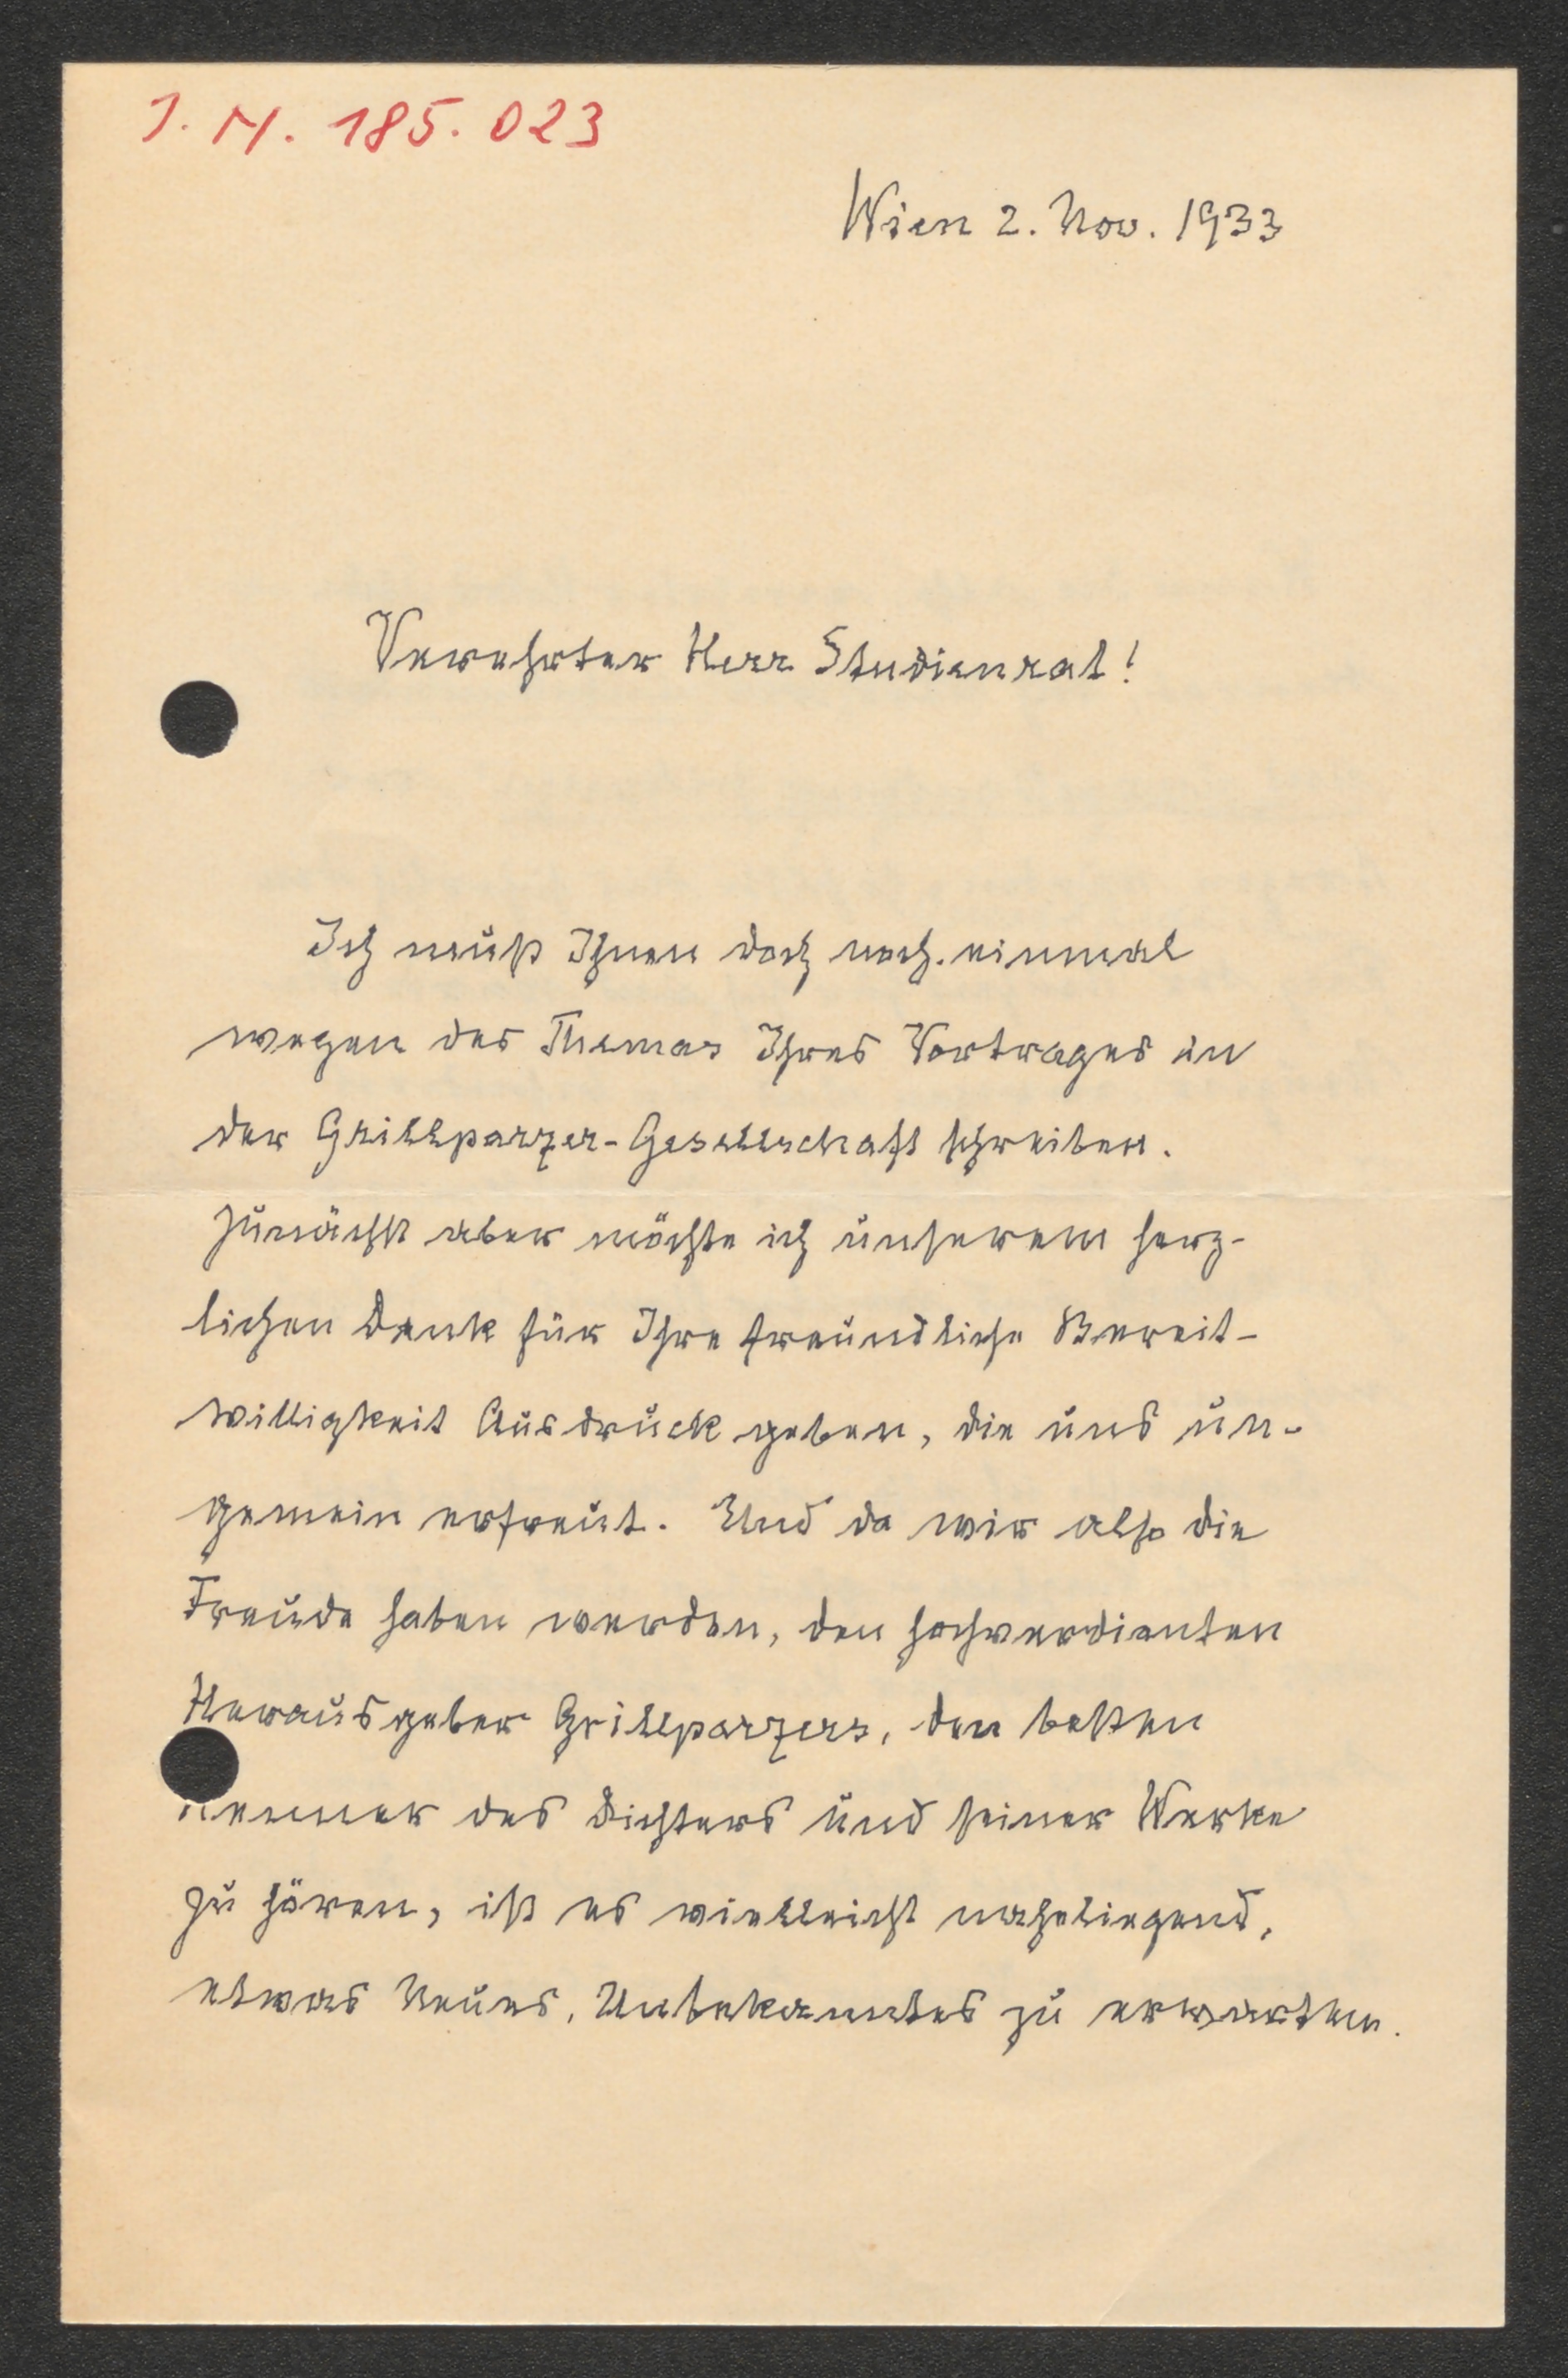 J. N. 185.023
Wien 2. Nov. 1933
Verehrter Herr Studienrat!
Ich muß Ihnen doch noch einmal
wegen des Themas Ihres Vortrages in
der Grillparzer-Gesellschaft schreiben.
Zunächst aber möchte ich unserem herz-
lichen Dank für Ihre freundliche Bereit-
willigkeit Ausdruck geben, die uns un-
gemein erfreut. Und da wir also die
Freude haben werden, den hochverdienten
Herausgeber Grillparzers, den besten
Kenner des Dichters und seiner Werke
zu hören, ist es vielleicht naheliegend,
etwas Neues, Unbekanntes zu erwarten.